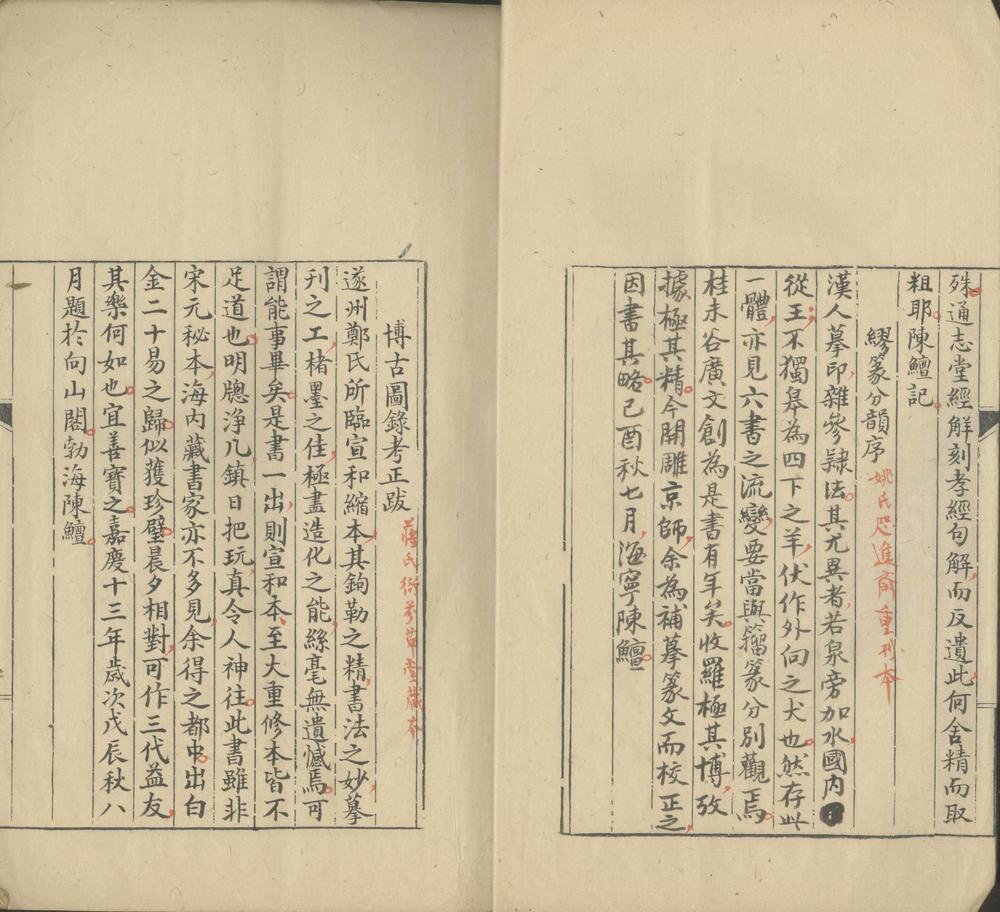 殊通志堂經解刻孝經句解而反遺此何舍精而取
粗耶陳鱣記
繆篆分韻序 姚氏咫進齋重刊本
漢人摹印雜參隷法其尤異者若泉旁加水國内
從王不獨皋為四下之羊伏作外向之犬也然存此
一體亦見六書之流變要當與籀篆分別觀焉
桂未谷廣文創為是書有年矣收羅極其博攷
據極其精今開雕京師余為補摹篆文而校正之
因書其略己酉秋七月海寧陳鱣
博古圖錄考正跋 蔣氏衍芬草堂藏本
遂州鄭氏所臨宣和縮本其鉤勒之精書法之妙摹
刊之工楮墨之佳極盡造化之能絲毫無遺憾焉可
謂能事畢矣是書一出則宣和本至大重修本皆不
足道也明牕浄几鎮日把玩真令人神往此書雖非
宋元秘本海内藏書家亦不多見余得之都中出白
金二十易之歸似獲珍璧晨夕相對可作三代益友
其樂何如也宜善寶之嘉慶十三年歲次戊辰秋八
月題於向山閣勃海陳鱣